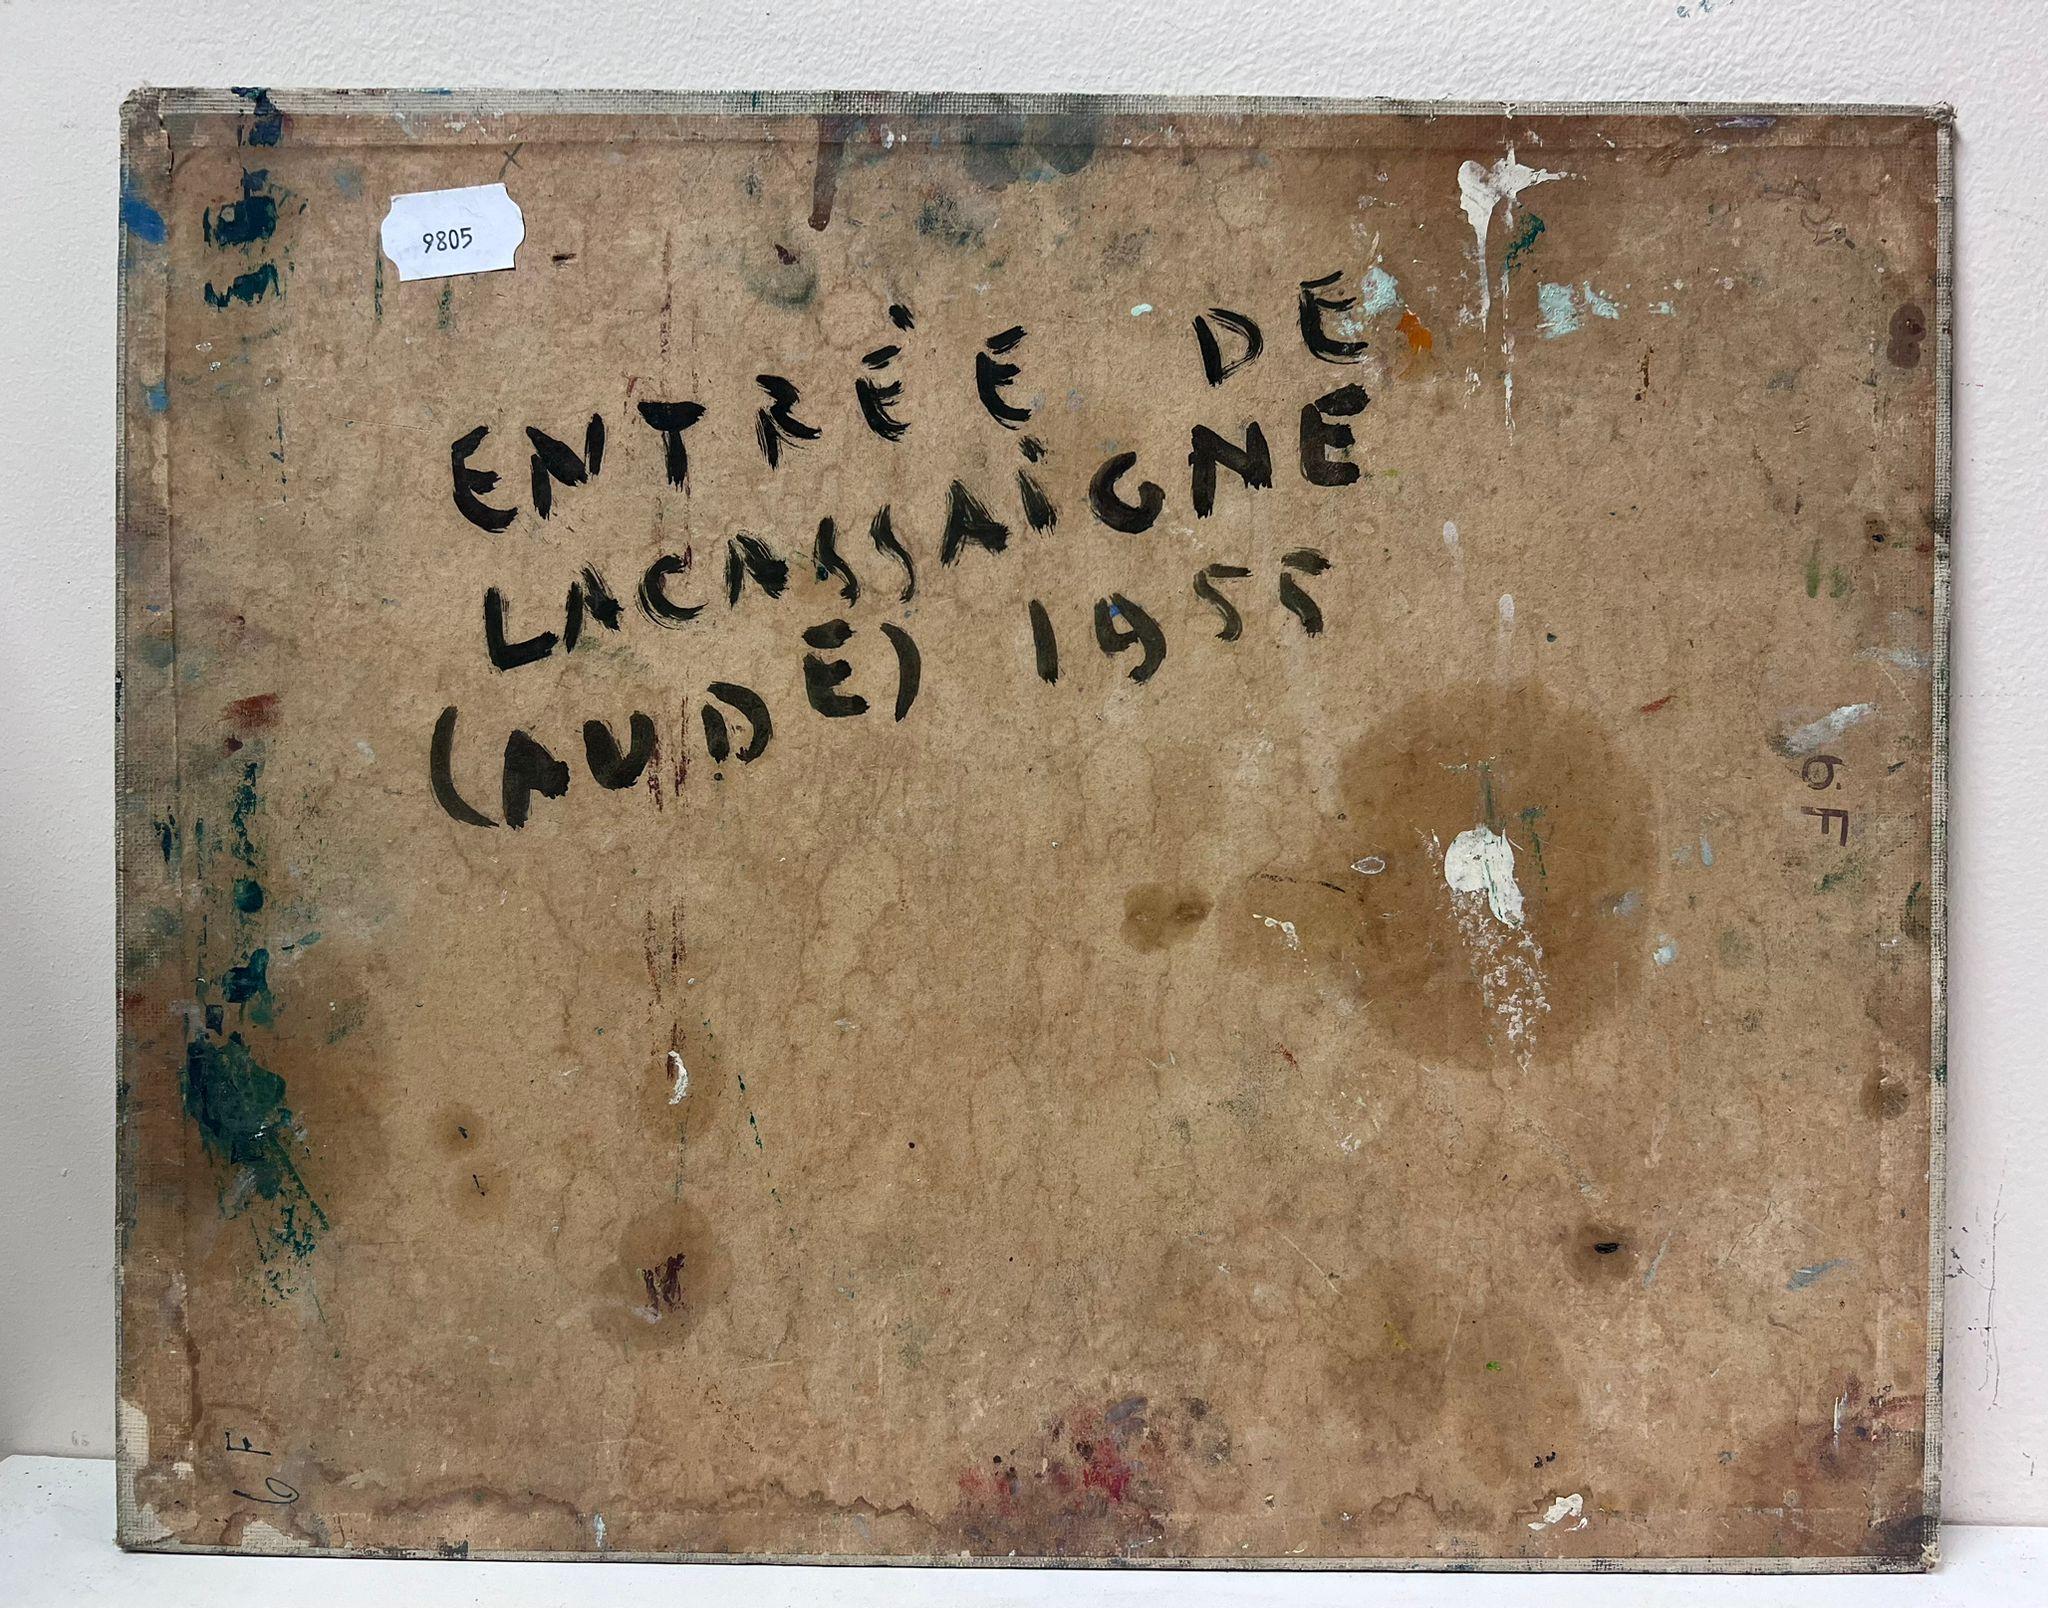 9805
ENTRÉE DE
LACASSAIGNE
(AUDE) 1955
6F
6F